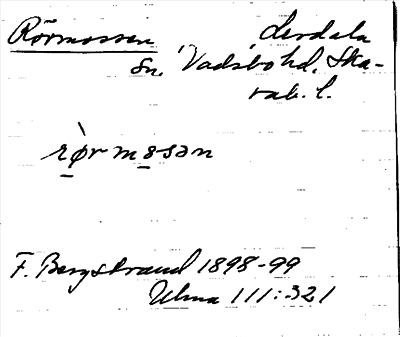 Rörmossen Lerdala
sn. Vadsbo hd. Ska-
rab. l.
rø̀r mosən
F. Bergstrand 1898-99
Ulma 111:321